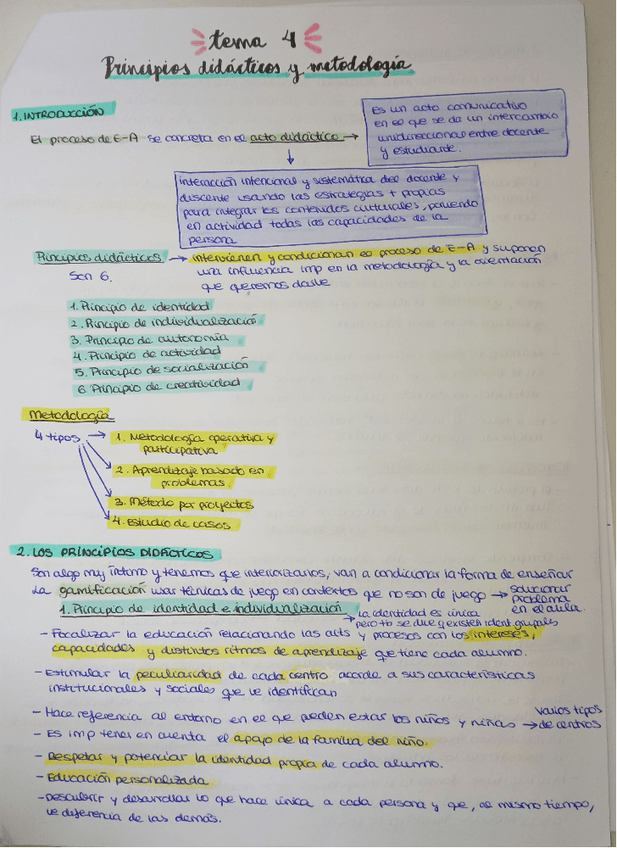 tema 4
Principios didácticos y metodología
1. INTRODUCCIÓN
El proceso de E-A se concreta en el acto didáctico →
Es un acto comunicativo
en el que se da un intercambio
unidireccional entre docente
y estudiante.
Interacción intencional y sistemática del docente y
discente usando las estrategias + propias
para integrar los contenidos culturales, poniendo
en actividad todas las capacidades de la
persona
Principios didácticos → intervienen y condicionan el proceso de E-A y suponen
Son 6. una influencia imp en la metodología y la orientación
que queremos darle
1. Principio de identidad
2. Principio de individualización
3. Principio de autonomía
4. Principio de actividad
5. Principio de socialización
6 Principio de creatividad
Metodología
4 tipos → 1. Metodología operativa y
participativa
2. Aprendizaje basado en
problemas.
3. Método por proyectos
4. Estudio de casos
2. LOS PRINCIPIOS DIDÁCTICOS
Son algo muy íntimo y tenemos que interiorizarlos, van a condicionar la forma de enseñar
La gamificación usar técnicas de juego en contextos que no son de juego → solucionar
problema
en el aula.
1. Principio de identidad e individualización → la identidad es única
pero tb se due q existen ident grupales
- Focalizar la educación relacionando las acts y procesos con los intereses,
capacidades y distintos ritmos de aprendizaje que tiene cada alumno.
- Estimular la peculiaridad de cada centro acorde a sus características
institucionales y sociales que le identifican
- Hace referencia al entorno en el que pueden estar los niños y niñas → varios tipos
de centros
- Es imp tener en cuenta el apoyo de la familia del niño.
- Respetar y potenciar la identidad propia de cada alumno.
- Educación personalizada
- Descubrir y desarrollar lo que hace única a cada persona y que, al mismo tiempo,
le diferencia de las demás.